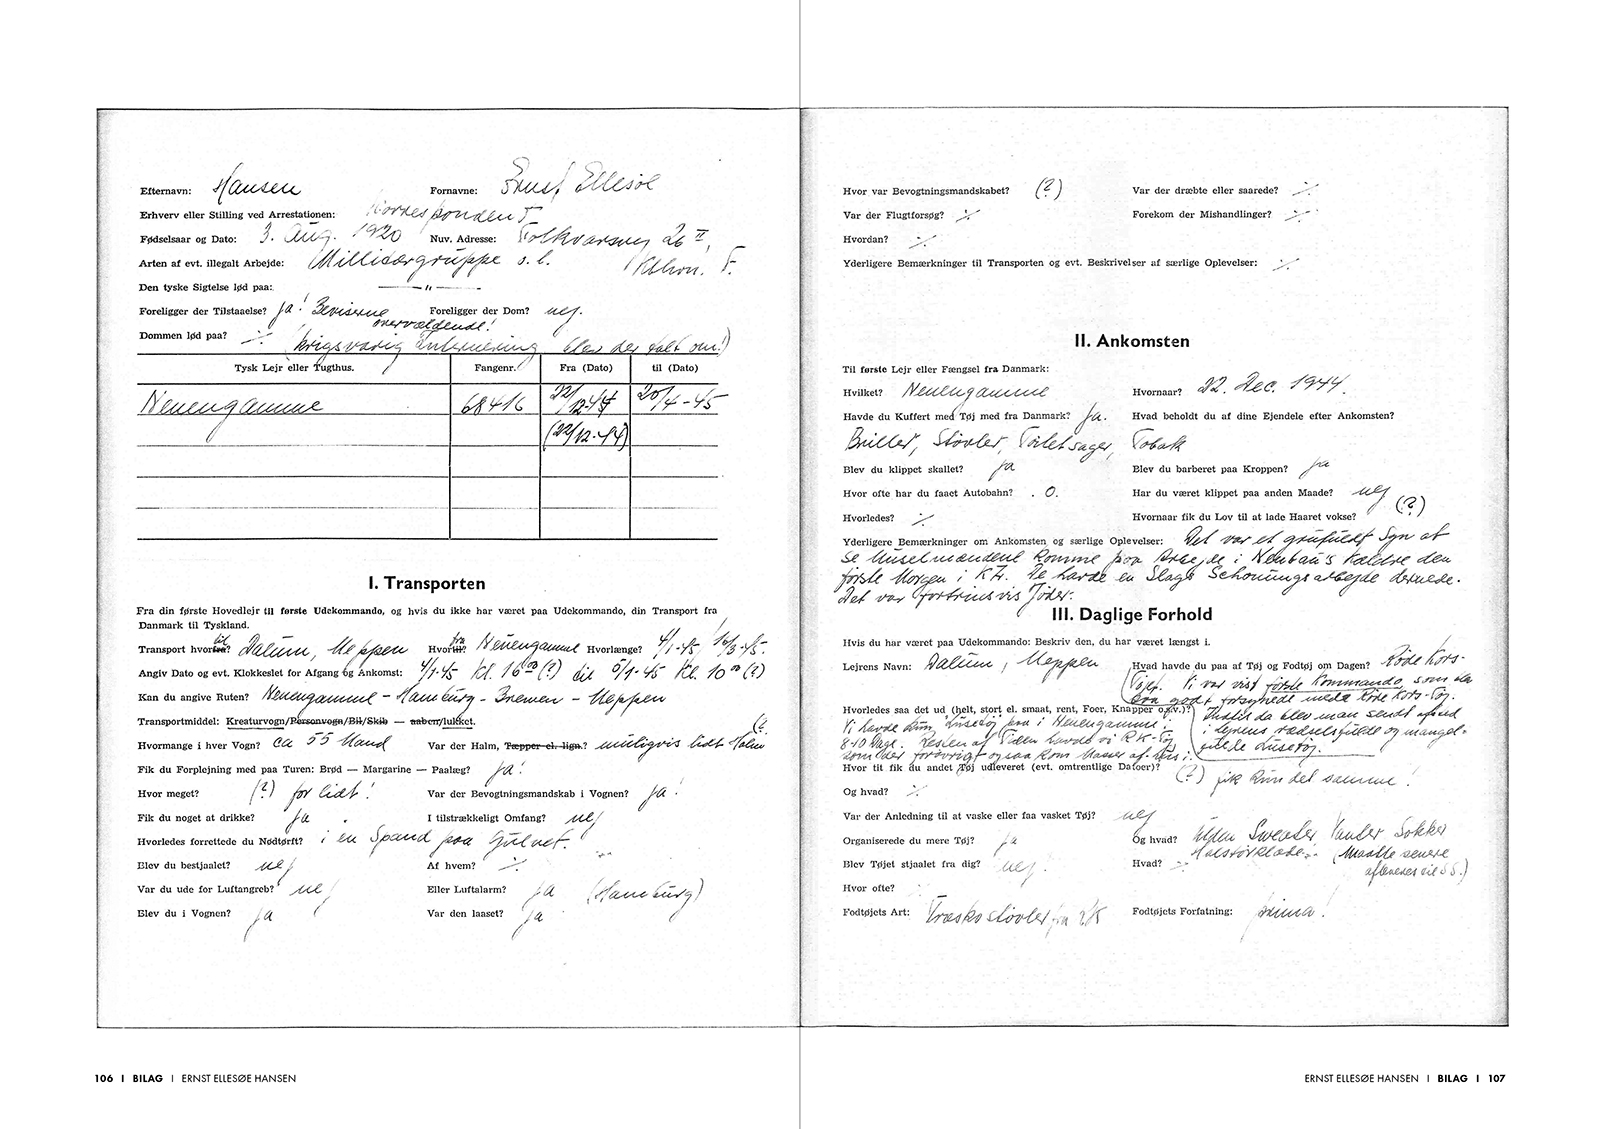 Efternavn: Hansen Fornavne: Ernst Ellesøe
Erhverv eller Stilling ved Arrestationen: Korrespondent
Fødselsaar og Dato: 3. Aug. 1920 Nuv. Adresse: Folkvarsvej 26 II,
Arten af evt. illegalt Arbejde: Millitærgruppe s. l. Kbhvn. F.
Den tyske Sigtelse lød paa: — " —
Foreligger der Tilstaaelse? ja! Beviserne Foreligger der Dom? nej.
overvældende!
Dommen lød paa? ·/· (krigsvarig Internering blev der talt om!)
Tysk Lejr eller Tugthus. Fangenr. Fra (Dato) til (Dato)
Neuengamme 68416 22/12-44 20/4-45
(22/12-44)
I. Transporten
Fra din første Hovedlejr til første Udekommando, og hvis du ikke har været paa Udekommando, din Transport fra
Danmark til Tyskland.
Transport hvorfra? til Dalum, Meppen Hvortil? fra Neuengamme Hvorlænge? 4/1-45, 16/3-45.
Angiv Dato og evt. Klokkeslet for Afgang og Ankomst: 4/1-45 Kl. 16 00 (?) til 5/1-45 Kl. 10 00 (?)
Kan du angive Ruten? Neuengamme - Hamburg - Bremen - Meppen
Transportmiddel: Kreaturvogn/Personvogn/Bil/Skib — aaben/lukket.
Hvormange i hver Vogn? ca 55 Mand Var der Halm, Tæpper el. lign.? muligvis lidt Halm (?)
Fik du Forplejning med paa Turen: Brød — Margarine — Paalæg? ja!
Hvor meget? (?) for lidt! Var der Bevogtningsmandskab i Vognen? ja!
Fik du noget at drikke? ja. I tilstrækkeligt Omfang? nej
Hvorledes forrettede du Nødtørft? i en Spand paa Gulvet.
Blev du bestjaalet? nej Af hvem? ·/·
Var du ude for Luftangreb? nej Eller Luftalarm? ja (Hamburg)
Blev du i Vognen? ja Var den laaset? ja
106 I BILAG I ERNST ELLESØE HANSEN
Hvor var Bevogtningsmandskabet? (?) Var der dræbte eller saarede? ·/·
Var der Flugtforsøg? ·/· Forekom der Mishandlinger? ·/·
Hvordan? ·/·
Yderligere Bemærkninger til Transporten og evt. Beskrivelser af særlige Oplevelser: ·/·
II. Ankomsten
Til første Lejr eller Fængsel fra Danmark:
Hvilket? Neuengamme Hvornaar? 22. Dec. 1944.
Havde du Kuffert med Tøj med fra Danmark? ja. Hvad beholdt du af dine Ejendele efter Ankomsten?
Briller, Støvler, Toiletsager, Tobak
Blev du klippet skallet? ja Blev du barberet paa Kroppen? ja
Hvor ofte har du faaet Autobahn? . 0. Har du været klippet paa anden Maade? nej
Hvorledes? ·/· Hvornaar fik du Lov til at lade Haaret vokse? (?)
Yderligere Bemærkninger om Ankomsten og særlige Oplevelser: Det var et grufuldt Syn at
se Muselmændene komme paa Arbejde i Neubau's Kældre den
første Morgen i KZ. De havde en Slags Schonungsarbejde dernede.
Det var fortrinsvis Jøder.
III. Daglige Forhold
Hvis du har været paa Udekommando: Beskriv den, du har været længst i.
Lejrens Navn: Dalum, Meppen Hvad havde du paa af Tøj og Fodtøj om Dagen? Røde Kors-
Tøj. Vi var vist første Kommando, som var
saa godt forsynede med Røde Kors-Tøj.
Hvorledes saa det ud (helt, stort el. smaat, rent, Foer, Knapper o.s.v.)? Indtil da blev man sendt afsted
Vi havde kun "Lusetøj" paa i Neuengamme i i Lejrens rædselsfulde og mangel-
8-10 Dage. Resten af Tiden havde vi R K-Tøj fulde Lusetøj.
som der forøvrigt ogsaa kom Masser af Lus i.
Hvor tit fik du andet Tøj udleveret (evt. omtrentlige Datoer)? (?) fik kun det samme!
Og hvad? ·/·
Var der Anledning til at vaske eller faa vasket Tøj? nej
Organiserede du mere Tøj? ja Og hvad? Ulden Sweater, Vanter, Sokker
Halstørklæde. (Maatte senere
Blev Tøjet stjaalet fra dig? nej. Hvad? ·/· afleveres til SS.)
Hvor ofte?
Fodtøjets Art: Træskostøvler fra RK Fodtøjets Forfatning: prima!
ERNST ELLESØE HANSEN I BILAG I 107